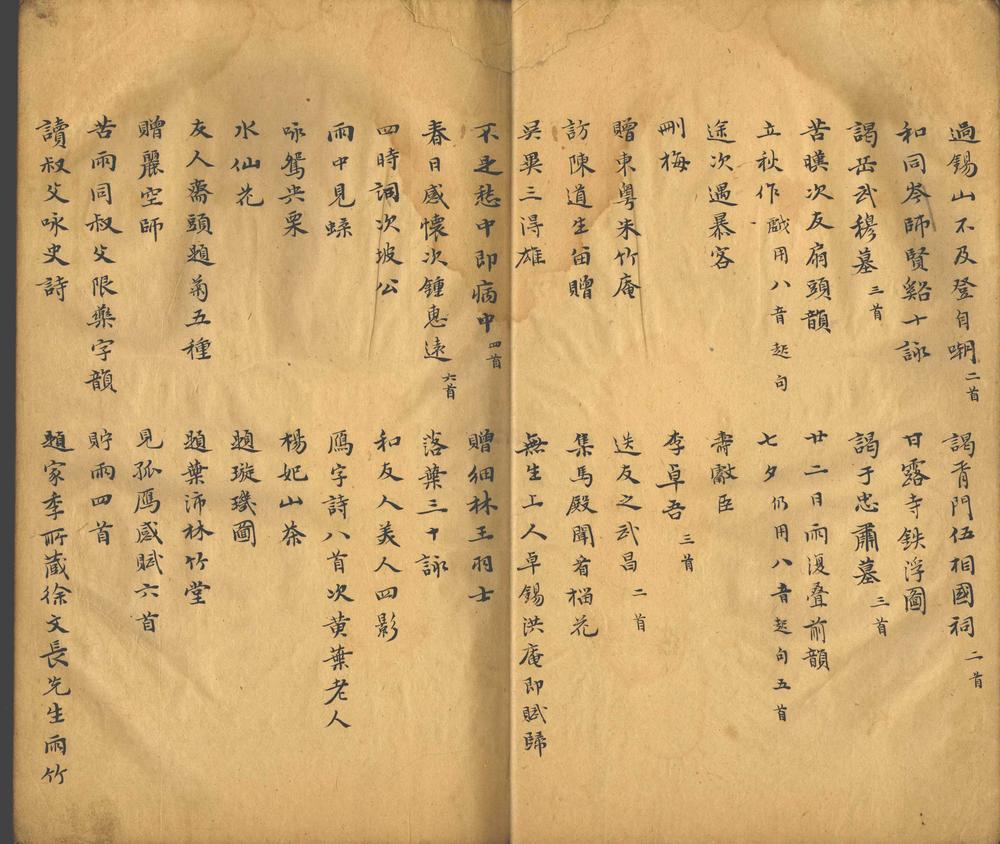 過錫山不及登自嘲二首 謁胥門伍相國祠二首
和同岑師賢谿十詠 甘露寺鉄浮圖
謁岳武穆墓三首 謁于忠肅墓三首
苦暵次友扇頭韻 廿二日雨復叠前韻
立秋作戲用八音起句 七夕仍用八音起句五首
途次遇暴客 壽獻臣
刪梅 李卓吾三首
贈東粵朱竹庵 送友之武昌二首
訪陳道生留贈 集馬殿聞看榴花
吳畢三得雄 無生上人卓錫洪庵即賦歸
不是愁中即病中四首 贈細林王羽士
春日感懷次鍾惠遠六首 落葉三十詠
四時詞次坡公 和友人美人四影
雨中見蝶 鴈字詩八首次黃葉老人
咏鴛央栗 楊妃山茶
水仙花 題璇璣圖
友人齋頭題菊五種 題葉沛林竹堂
贈麗空師 見孤鴈感賦六首
苦雨同叔父限藥字韻 貯雨四首
讀叔父咏史詩 題家季所藏徐文長先生雨竹